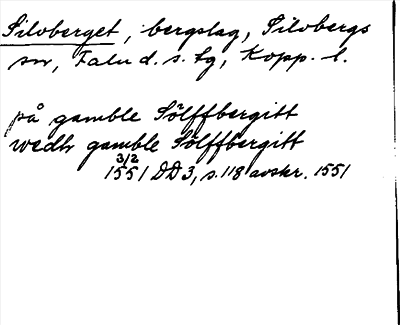 Silvberget, bergslag, Silvbergs
sn, Falu d. s. tg, Kopp. l.
på gamble Sölffbergitt
wedh gamble Sölffbergitt
3/2
1551 DD3, s. 118 avskr. 1551